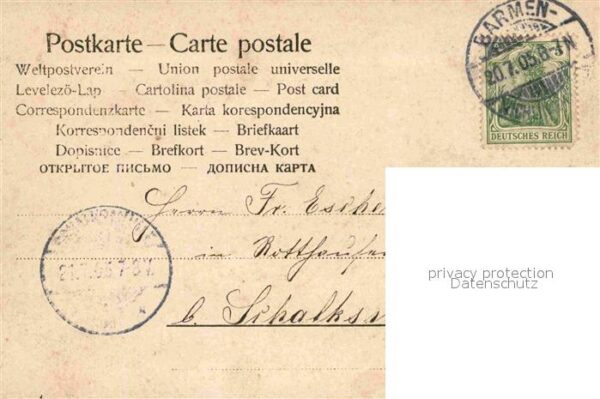 Postkarte — Carte postale
Weltpostverein — Union postale universelle
Levelező-Lap — Cartolina postale — Post card
Correspondenzkarte — Karta korespondencyjna
Korrespondenční listek — Briefkaart
Dopisnice — Brefkort — Brev-Kort
ОТКРЫТОЕ ПИСЬМО — ДОПИСНА КАРТА
BARMEN-
20.7.05.8-9N
DEUTSCHES REICH
Herrn Fr.
in Rotthausen
b. Schalke
21.7.05.7-8V.
privacy protection
Datenschutz